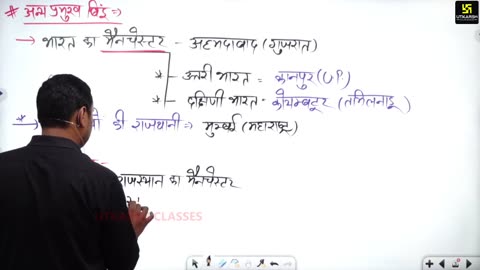 # अन्य प्रमुख बिंदु ⇒
UTKARSH
→ भारत का मैनचेस्टर - अहमदाबाद (गुजरात)
* → उत्तरी भारत = कानपुर (UP)
* → दक्षिणी भारत - कोयम्बटूर (तमिलनाडू)
* → की राजधानी ⇒ मुम्बई (महाराष्ट्र)
राजस्थान का मैनचेस्टर
UTKARSH CLASSES